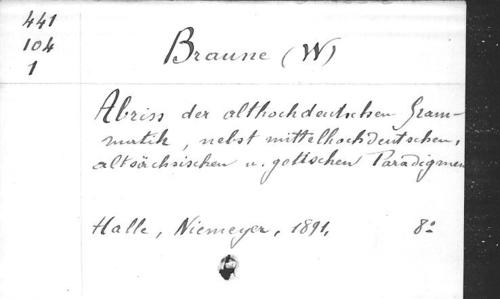 441
104
1
Braune (W)
Abriss der althochdeutschen Gram-
matik, nebst mittelhochdeutschen,
altsächsischen u. gotischen Paradigmen
Halle, Niemeyer, 1891, 8°